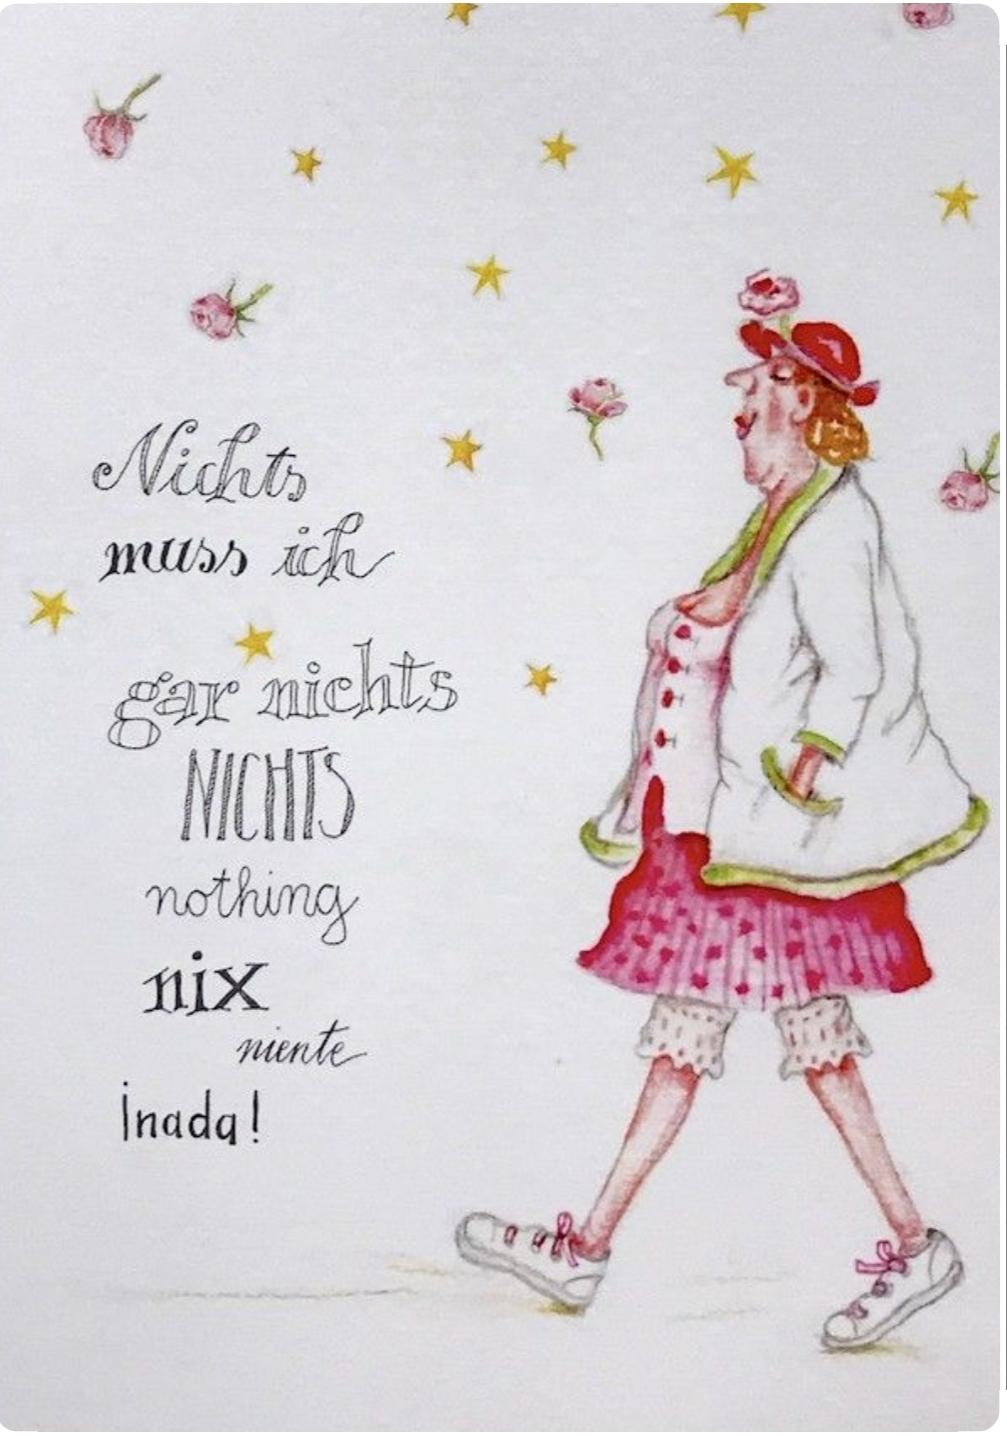 Nichts
muss ich
gar nichts
NICHTS
nothing
nix
niente
¡nada!